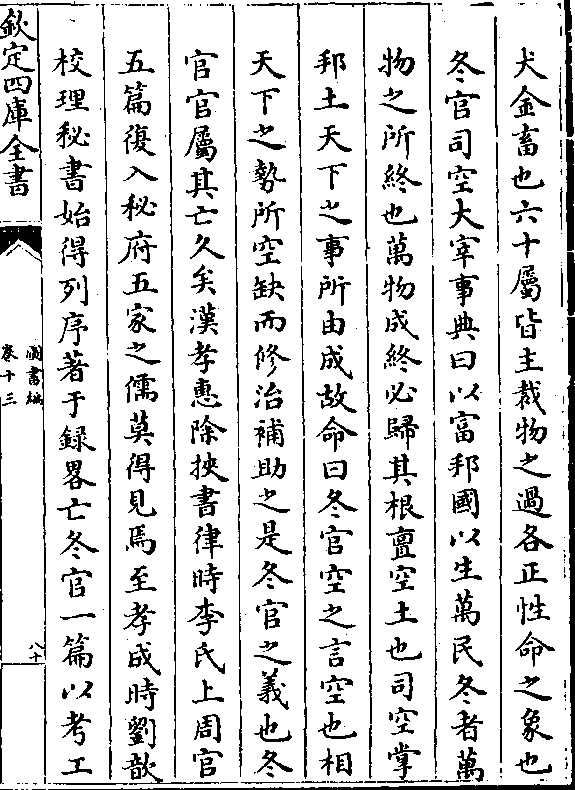 犬金畜也六十屬皆主裁物之過各正性命之象也
冬官司空大宰事典曰以富邦國以生萬民冬者萬
物之所終也萬物成終必歸其根亶空土也司空掌
邦土天下之事所由成故命曰冬官空之言空也相
天下之勢所空缺而修治補助之是冬官之義也冬
官官屬其亡久矣漢孝惠除挾書律時李氏上周官
五篇復入秘府五家之儒莫得見焉至孝成時劉歆
校理秘書始得列序著于録畧亡冬官一篇以考工
欽定四庫全書
圖書編
卷十三
八十